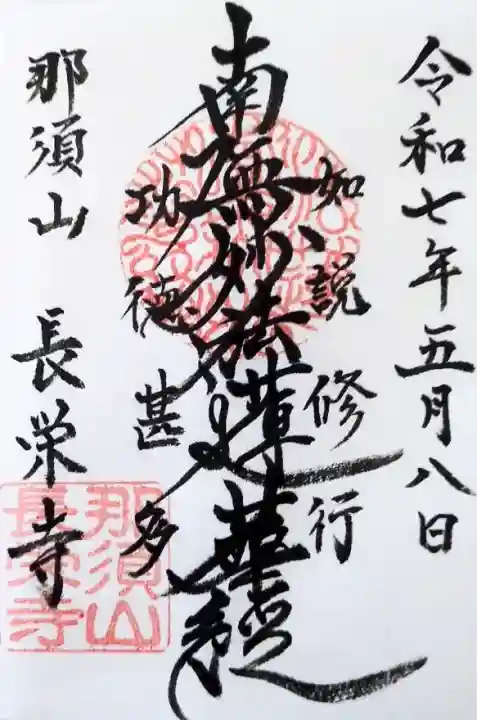 令和七年五月八日
如説修行
南無妙法蓮華経
功徳甚多
那須山 長栄寺
那須山
長栄寺